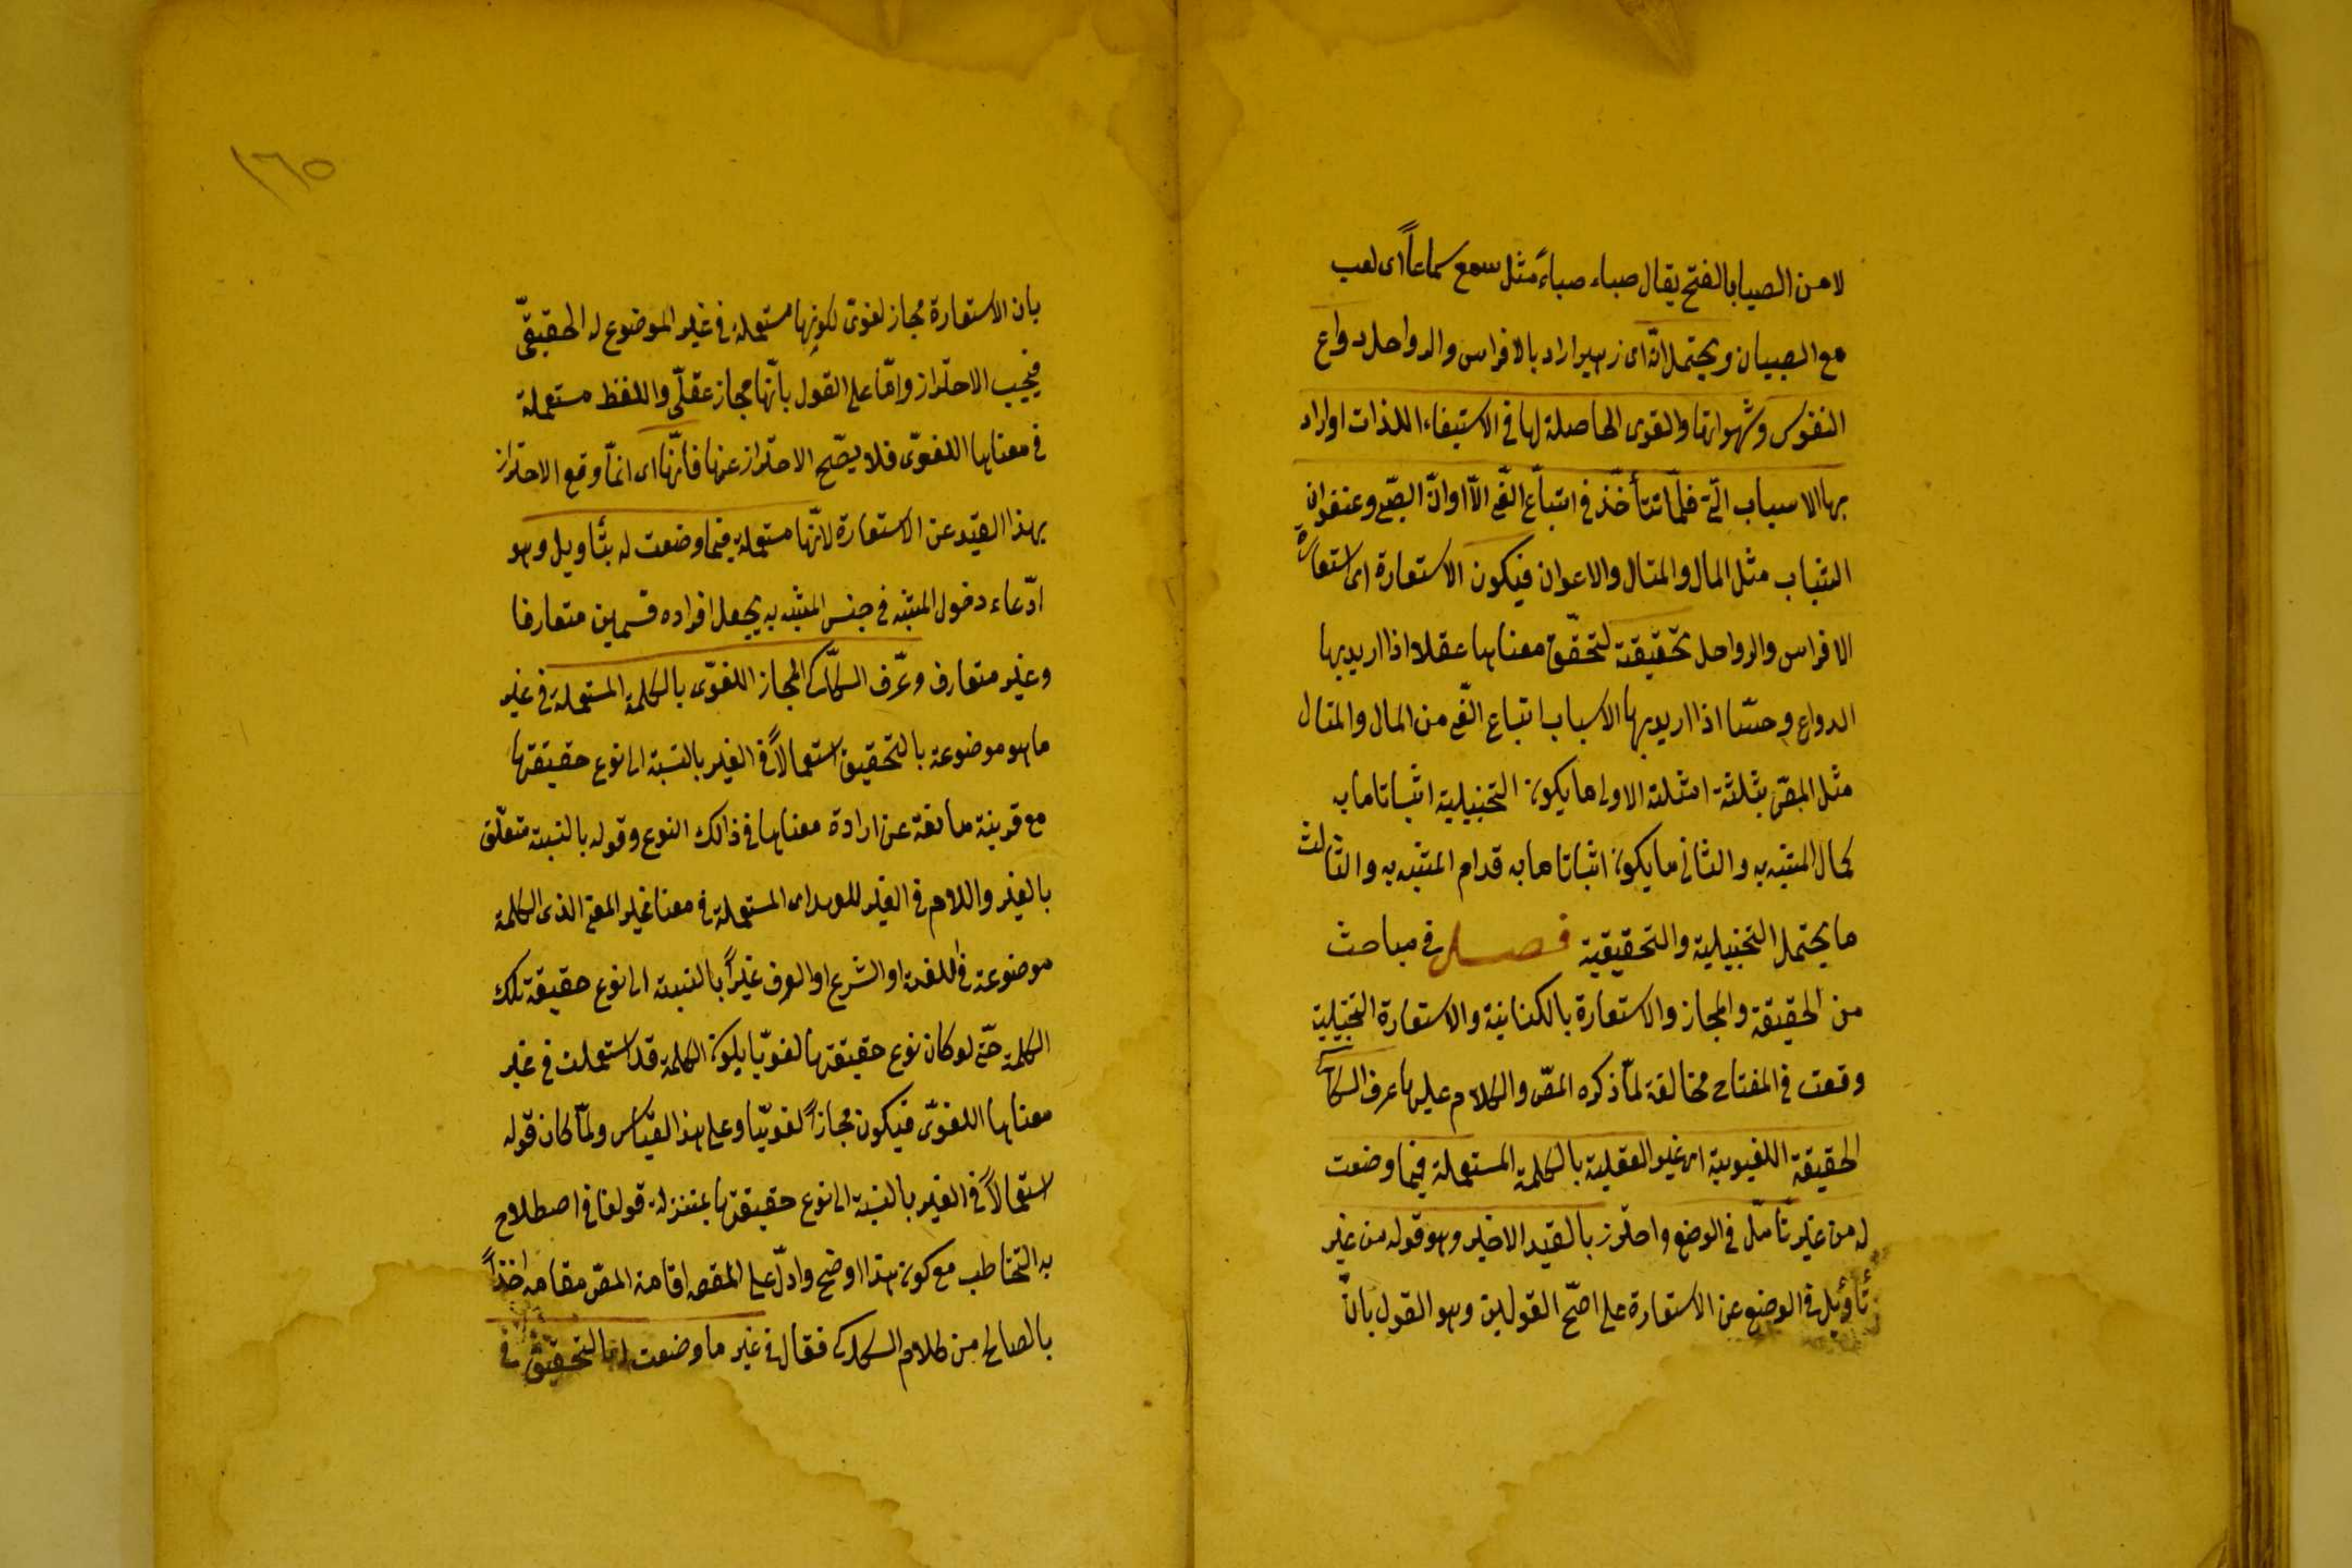 لا من الصبا بالفتح يقال صباء صباءً مثل سمع سماعاً اى لعب
مع الصبيان ويحتمل انّه اى زهير اراد بالافراس والرواحل دواع
النفوس وشهواتها والقوى الحاصلة لها فى الاستيفاء اللذات او اراد
بها الاسباب الّتى فلمّا تتأخّذ فى اتباع الغّى الاّ اوانّ الصّبى وعنفوان
الشباب مثل المال والمنال والاعوان فيكون الاستعارة اى استعارة
الافراس والرواحل تحقيقية لتحقّق معناها عقلا اذا اريد بها
الدواع وحسّا اذا اريد بها الاسباب اتباع الغّى من المال والمنال
مثل المصّ بثلثة امثلة الاولى ما يكون التخييلية اثباتا ما به
كمال المشبّه به والثانى ما يكون اثباتا ما به قدام المشبّه به والثالث
ما يحتمل التخييلية والتحقيقية فصل فى مباحث
من الحقيقة والمجاز والاستعارة بالكناية والاستعارة التخييلية
وقعت فى المفتاح مخالفة لمّا ذكره المصّ والكلام عليها عرف السكاكى
الحقيقة اللغيوية اى غير العقلية بالكلمة المستعملة فيما وضعت
له من غير تأمّل فى الوضع واحترز بالقيد الاخير وهو قوله من غير
تأويل فى الوضع عن الاستعارة على اصّح القولين وهو القول بانّ
١٦٥
بان الاستعارة مجاز لغوىّ لكونها مستعملة فى غير الموضوع له الحقيقىّ
فيجب الاحتراز وامّا على القول بانّها مجاز عقلىّ واللفظ مستعملة
فى معناها اللغوىّ فلا يصّح الاحتراز عنها فانّها اى انمّا وقع الاحتراز
بهذا القيد عن الاستعارة لانّها مستعملة فيما وضعت له بتأويل وهو
ادّعاء دخول المشبّه فى جنس المشبّه به بجعل افراده قسمين متعارفا
وغير متعارف وعّرف السكّاكى المجاز اللغوّى بالكلمة المستعملة فى غير
ما هو موضوعة بالتحقيق استعمالاً فى الغير بالنسبة الى نوع حقيقتها
مع قرينة مانعة عن ارادة معناها فى ذالك النوع وقوله بالنسبة متعلّق
بالغير واللام فى الغير للعهد اى المستعملة فى معنا غير المعنى الذى الكلمة
موضوعة فى اللغة او الشرع او العرف غيراً بالنسبة الى نوع حقيقة تلك
الكلمة حتّى لو كان نوع حقيقتها لغويّا يكون الكلمة قد استعملت فى غير
معناها اللغوىّ فيكون مجازاً لغويّا وعلى هذا القياس ولمّا كان قوله
استعمالاً فى الغير بالنسبة الى نوع حقيقتها بمنزلة قولنا فى اصطلاح
به التخاطب مع كون هذا اوضح وادلّ على المقصه اقامة المصّ مقامه اخذاً
بالصالح من كلام السكاكى فقال فى غير ما وضعت له بالتحقيق فى